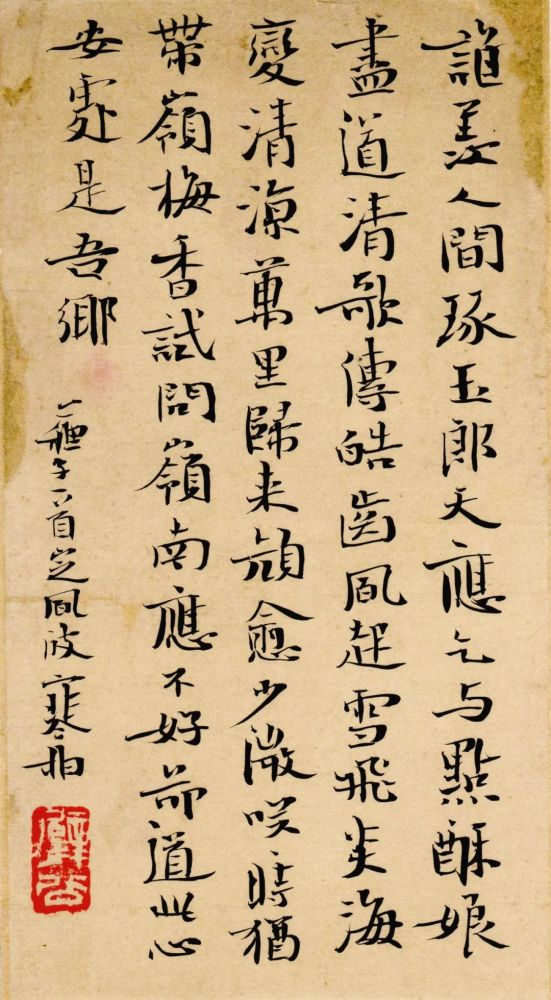 誰羨人間琢玉郎天應乞与點酥娘
盡道清歌傳皓齒風起雪飛炎海
變清涼萬里歸来顔愈少微咲々時猶
帶嶺梅香試問嶺南應不好却道此心
安處是吾鄉
蘇子一首定風波